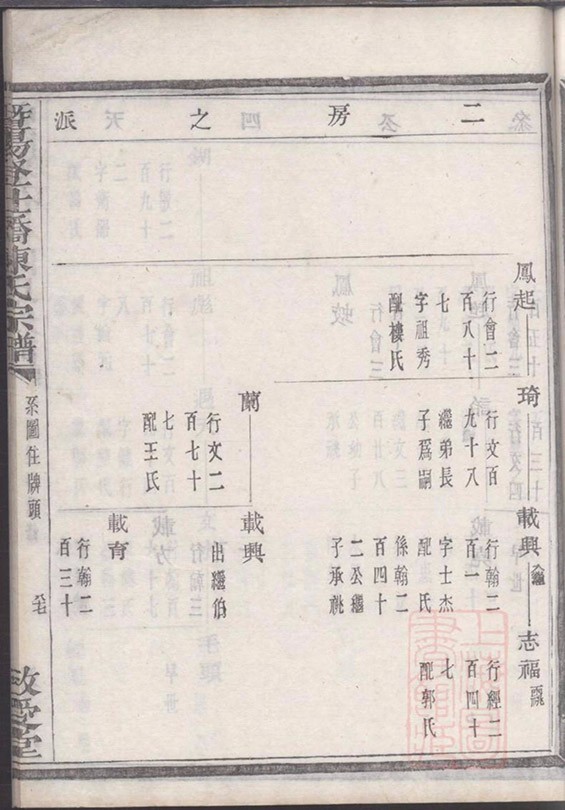 二房之派
鳳起
行會二
百八十
七
字祖秀
配樓氏
琦
行文百
九十八
繼弟長
子爲嗣
載興
行翰二
百一十
字士杰
配王氏
係翰二
百四十
二公繼
子承祧
志福
行經二
百四十
七
配郭氏
蘭
行文二
百七十
七
配王氏
載興
出繼伯
載育
行翰二
百三十
陳氏宗譜
系圖住牌頭
敦愛堂